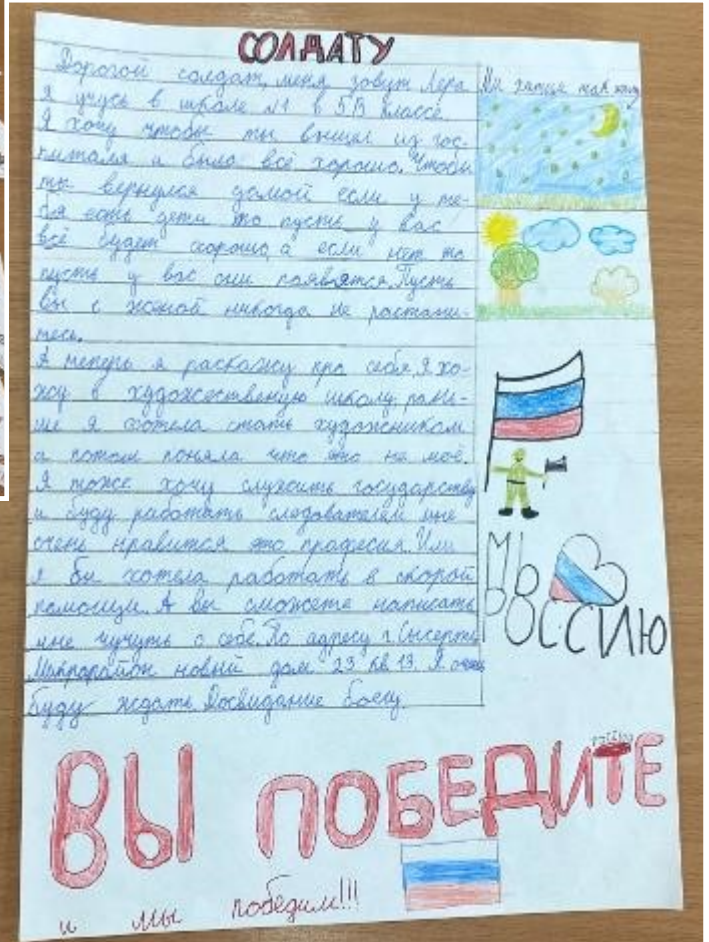 СОЛДАТУ
Дорогой солдат, меня зовут Лера
Я учусь в школе №1 в 5В классе.
Я хочу чтобы ты вышел из гос-
питаля и было всё хорошо. Чтобы
ты вернулся домой если у те-
бя есть дети то пусть у вас
всё будет хорошо, а если нет то
пусть у вас они появятся. Пусть
Вы с женой никогда не растани-
тесь.
А теперь я раскажу про себя. Я хо-
жу в художественую школу, рань-
ше я хотела стать художником
а потом поняла что это не моё.
Я тоже хочу служить государству
и буду работать следователем мне
очень нравится это професия. Или
я бы хотела работать в скорой
помощи. А вы сможете написать
мне чучуть о себе. По адресу г. Сысерть
Микрорайон новый дом 23 кв 13. Я очень
буду ждать. Досвидание боец.
МЫ
РОССИЮ
ВЫ ПОБЕДИТЕ
и мы победим!!!